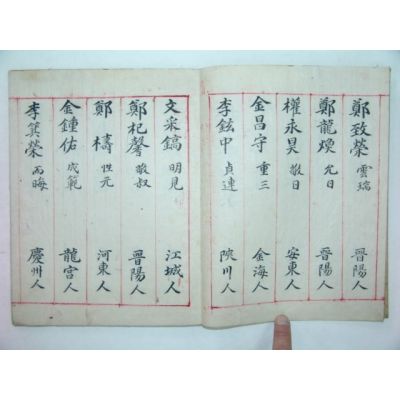 鄭致榮 雲瑞 晋陽人
鄭龍煥 允日 晋陽人
權永昊 敬日 安東人
金昌守 重三 金海人
李鉉中 貞連 陜川人
文采鎬 明見 江城人
鄭杞馨 敬叔 晋陽人
鄭檮 性元 河東人
金鍾佑 成範 龍宮人
李箕榮 丙晦 慶州人